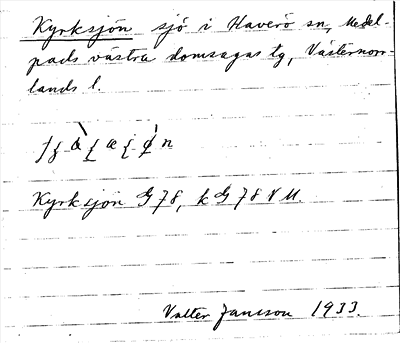 Kyrksjön sjö i Haverö sn, Medel-
pads västra domsagas tg, Västernorr-
lands l.
Kyrksjön G 78, k G 78 V U.
Valter Jansson 1933.